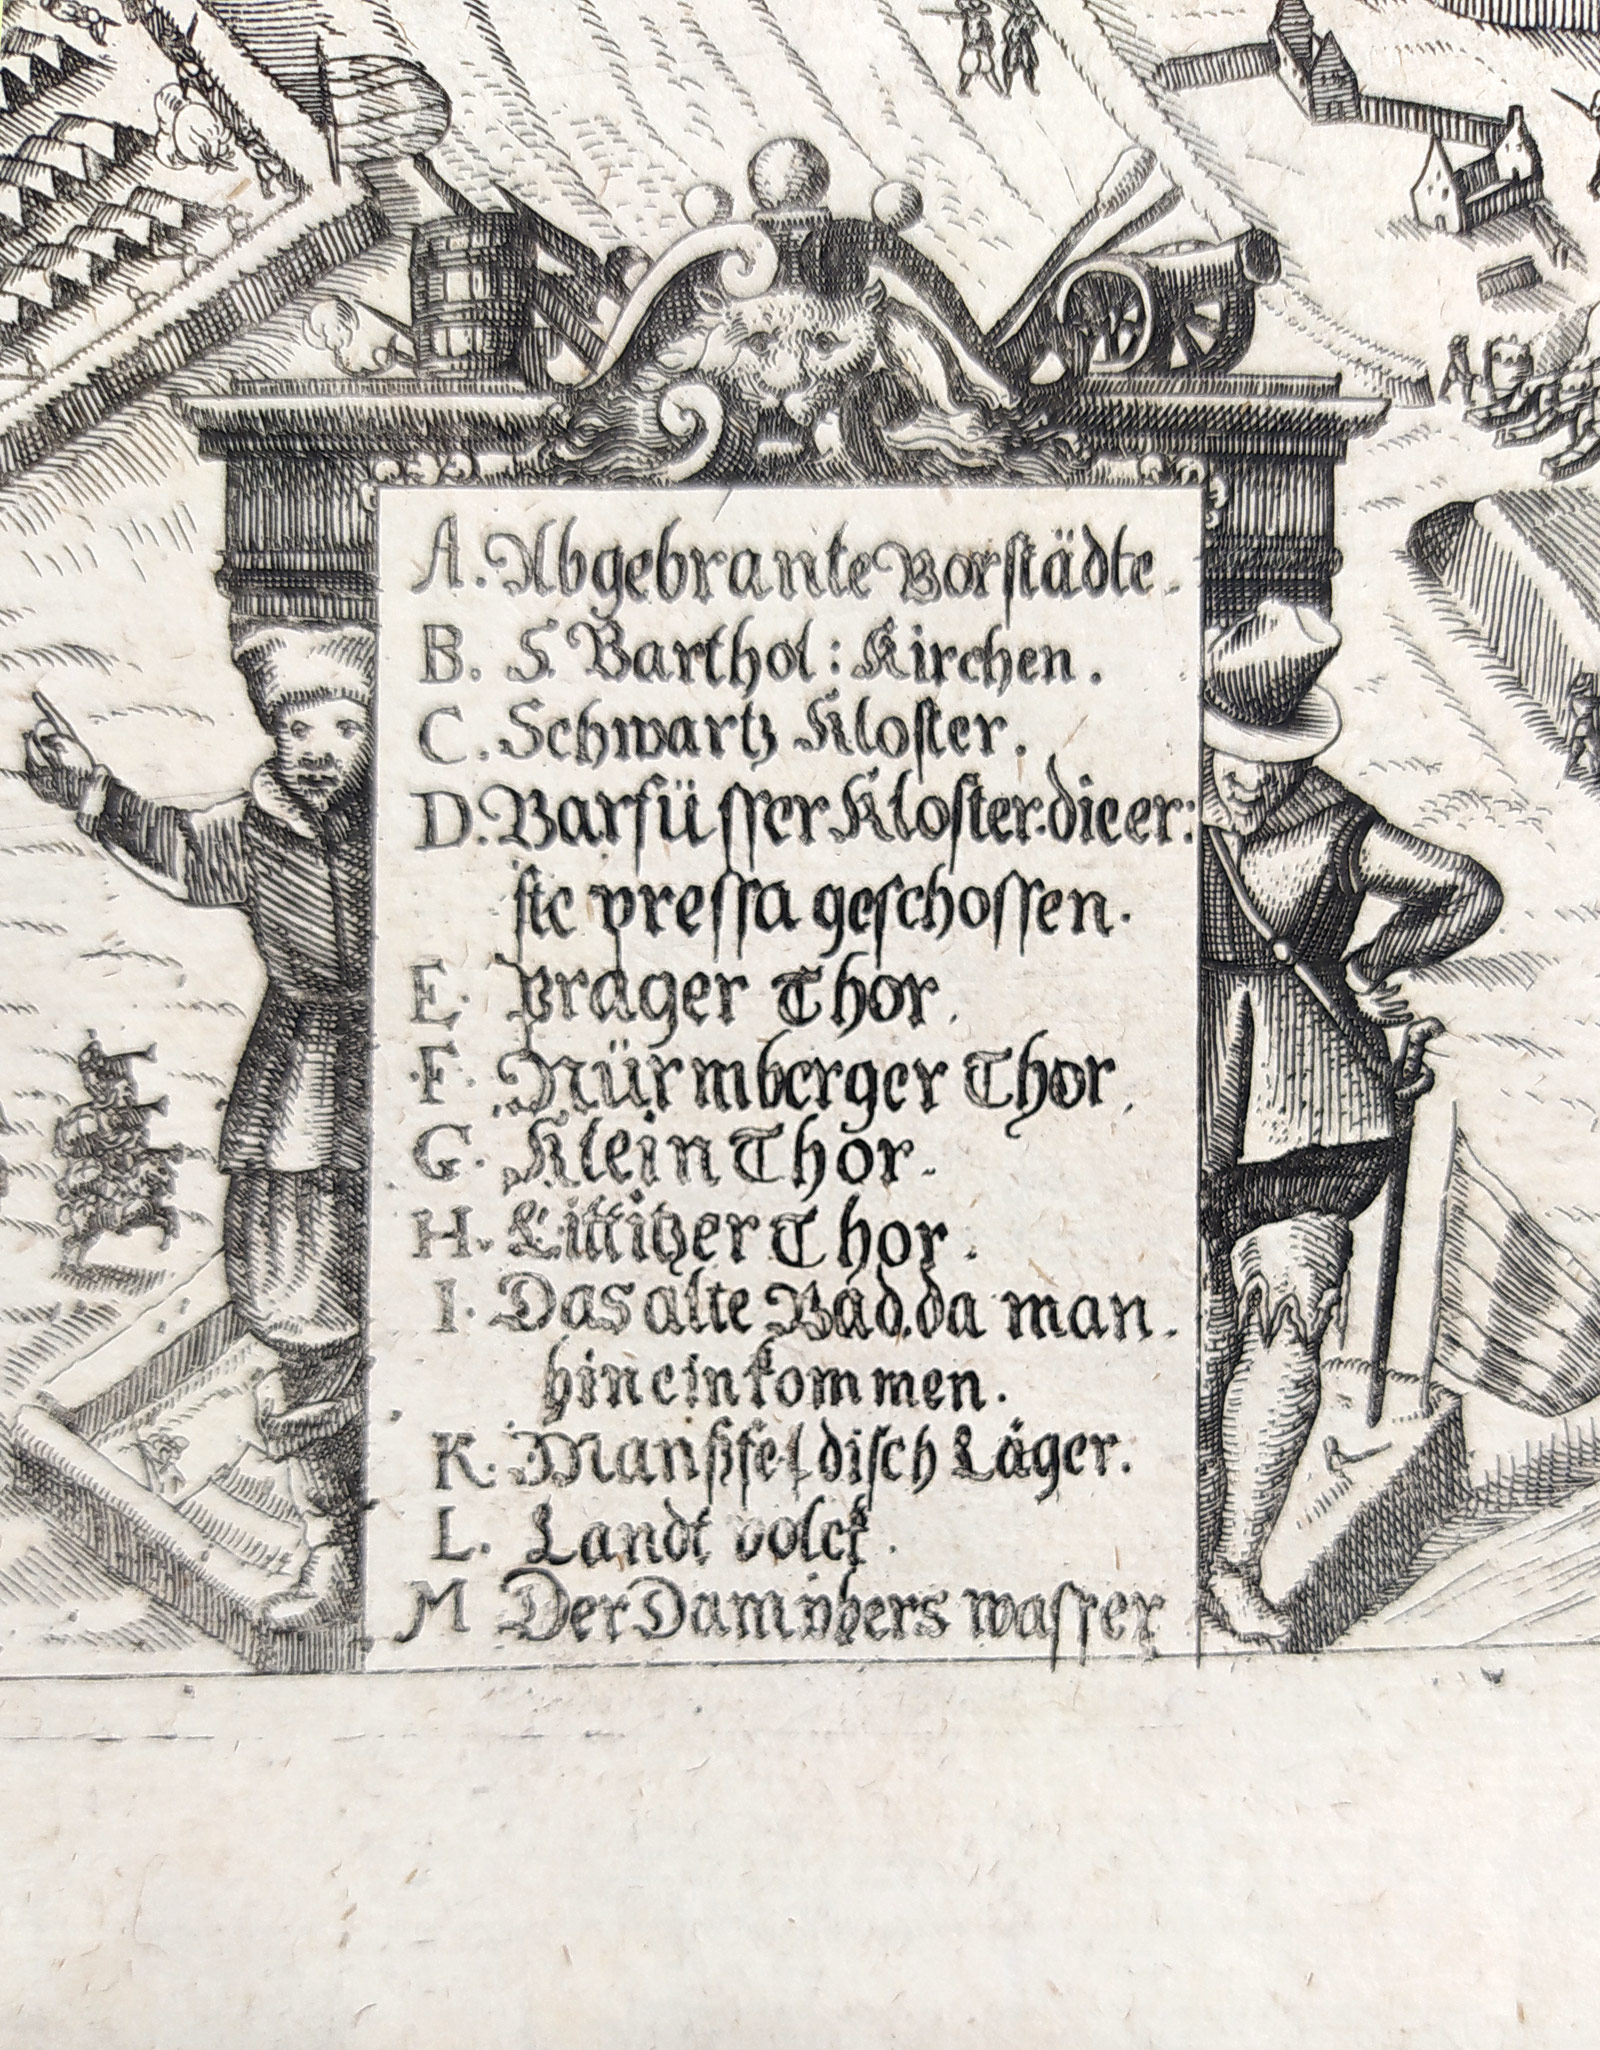 A. Abgebrante Vorstädte.
B. S. Barthol: Kirchen.
C. Schwartz Kloster.
D. Barfüsser Kloster. die er:
ste pressa geschossen.
E. Prager Thor.
F. Nürmberger Thor.
G. Klein Thor.
H. Littitzer Thor.
I. Das alte Bad, da man.
hinein kommen.
K. Manßfeldisch Läger.
L. Landt volck.
M Der wasser